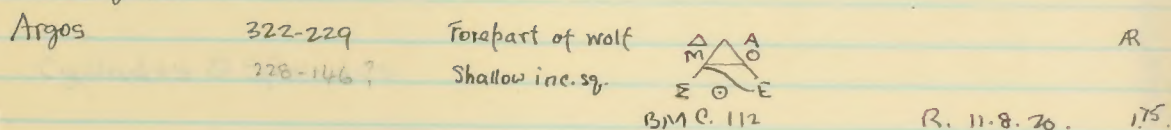 Argos 322-229 Forepart of wolf Δ A Æ
M O
228-146? Shallow inc. sq. Σ Ο Ε
BMC. 112 R. 11.8.20. 1.75.